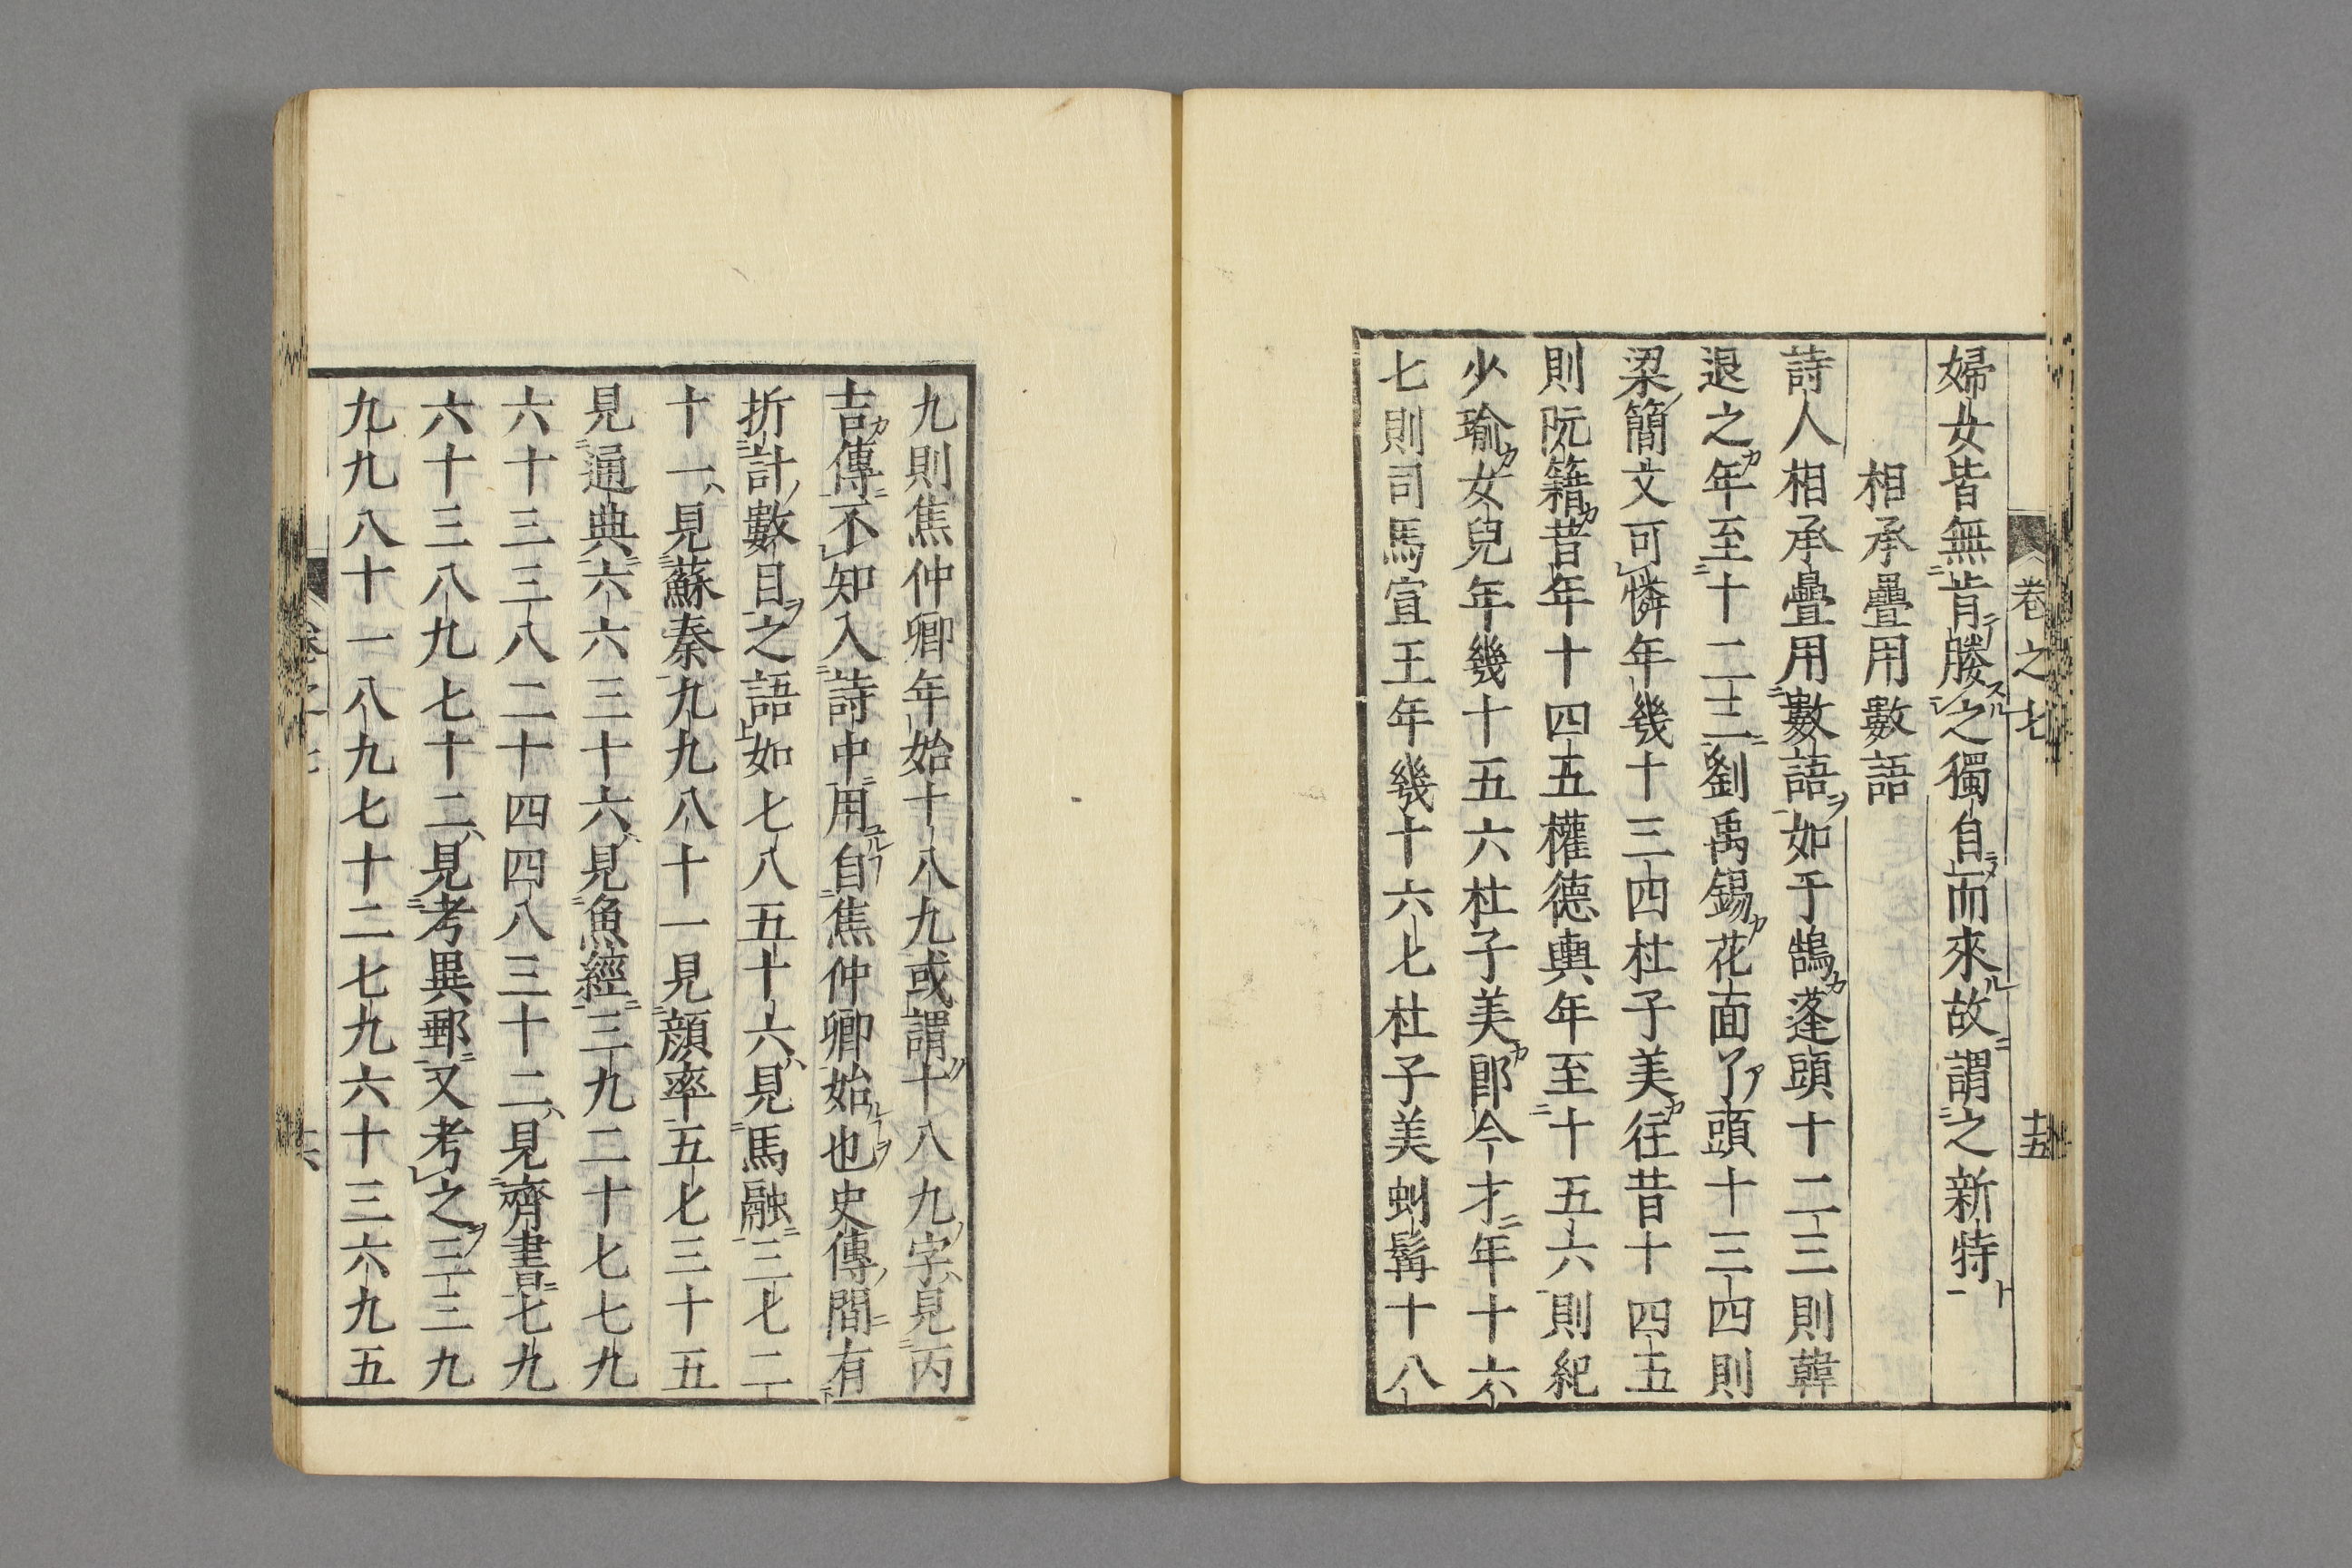 卷之七
十五
婦女皆無肯媵之獨自而來故謂之新特
相承疊用數語
詩人相承疊用數語如于鵠蓬頭十二三則韓
退之年至十二三劉禹錫花面丫頭十三四則
梁簡文可憐年幾十三四杜子美往昔十四五
則阮籍昔年十四五權德輿年至十五六則紀
少瑜女兒年幾十五六杜子美郎今才年十六
七則司馬宣王年幾十六七杜子美虯髯十八
九則焦仲卿年始十八九或謂十八九字見丙
吉傳不知入詩中用自焦仲卿始也史傳間有
折計數目之語如七八五十六見馬融三七二
十一見蘇秦九九八十一見顏率五七三十五
見通典六六三十六見魚經三九二十七七九
六十三三八二十四四八三十二見齊書七九
六十三八九七十二見考異郵又考之三三九
九九八十一八九七十二七九六十三六九五